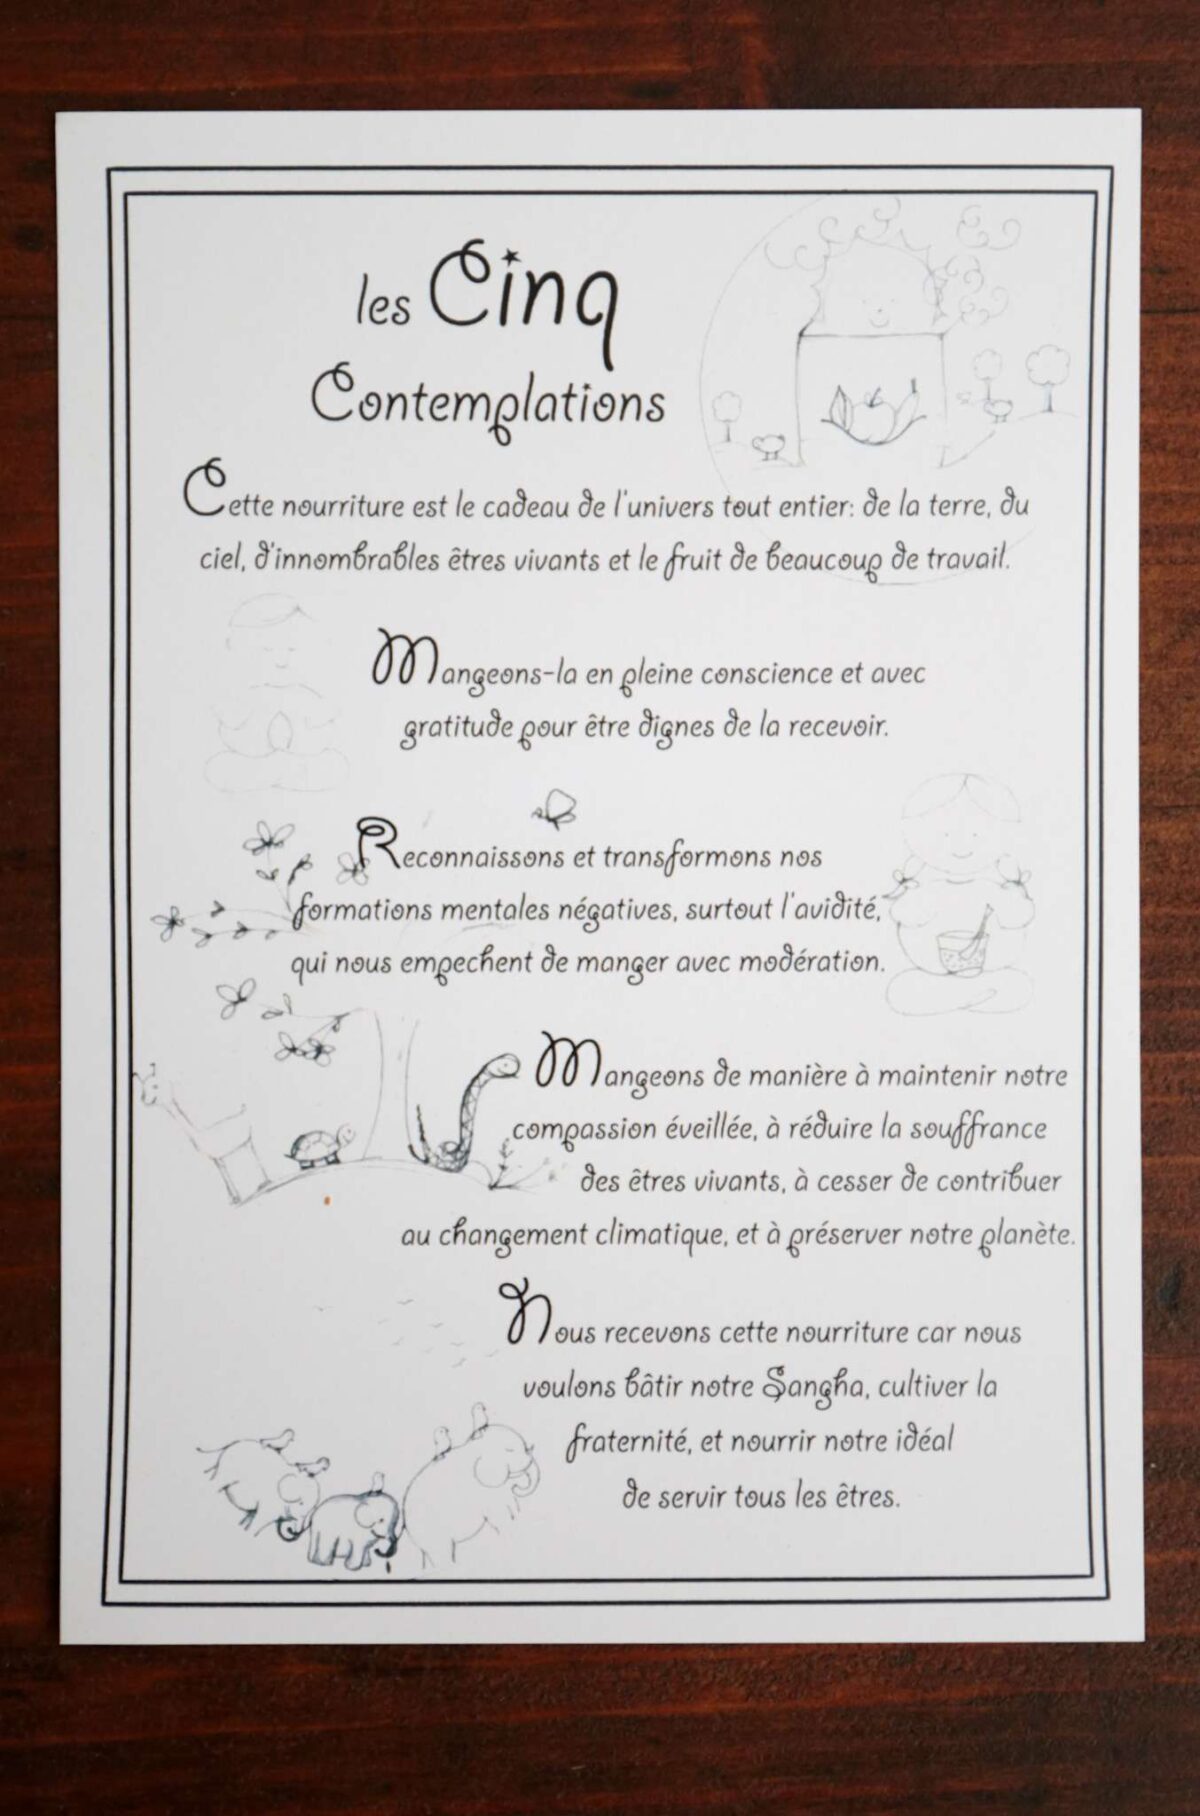 les Cinq
Contemplations
Cette nourriture est le cadeau de l'univers tout entier: de la terre, du
ciel, d'innombrables êtres vivants et le fruit de beaucoup de travail.
Mangeons-la en pleine conscience et avec
gratitude pour être dignes de la recevoir.
Reconnaissons et transformons nos
formations mentales négatives, surtout l'avidité,
qui nous empechent de manger avec modération.
Mangeons de manière à maintenir notre
compassion éveillée, à réduire la souffrance
des êtres vivants, à cesser de contribuer
au changement climatique, et à préserver notre planète.
Nous recevons cette nourriture car nous
voulons bâtir notre Sangha, cultiver la
fraternité, et nourrir notre idéal
de servir tous les êtres.